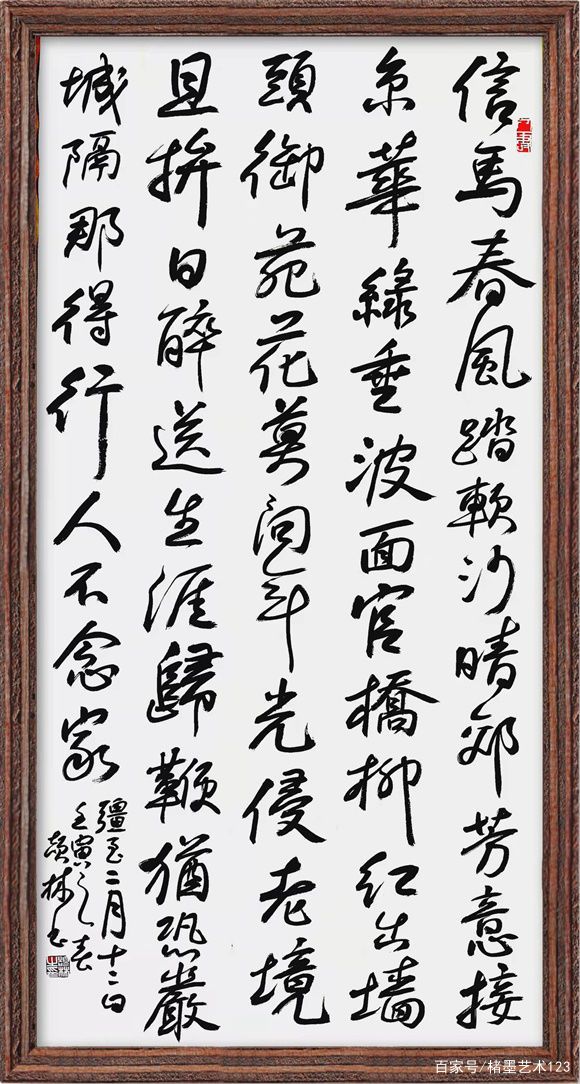 信馬春風踏軟沙晴郊芳意接
京華綠垂波面官橋柳紅出墻
頭御苑花莫問年光侵老境
且拚日醉送生涯歸鞭猶恐嚴
城隔那得行人不念家
疆至二月十二日
壬寅之春
林书
百家号/楮墨艺术123